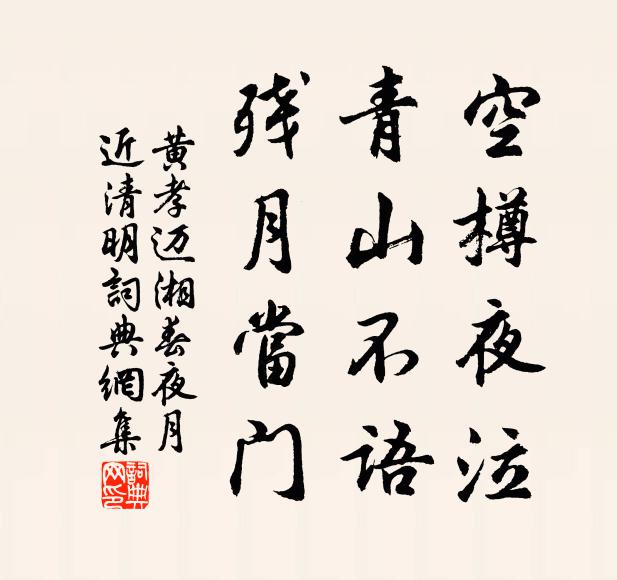 空樽夜泣
青山不语
残月當门
黄孝迈湘春夜月
近清明詞典網集
詞典
网印